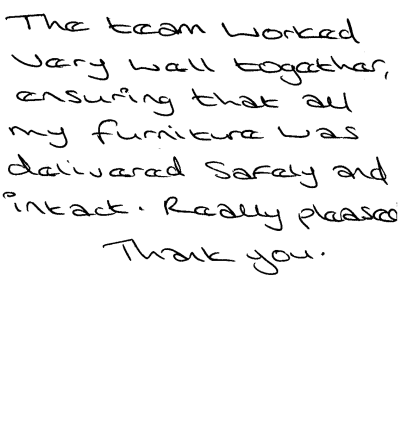 The team worked
very well together,
ensuring that all
my furniture was
delivered safely and
intact. Really pleased
Thank you.